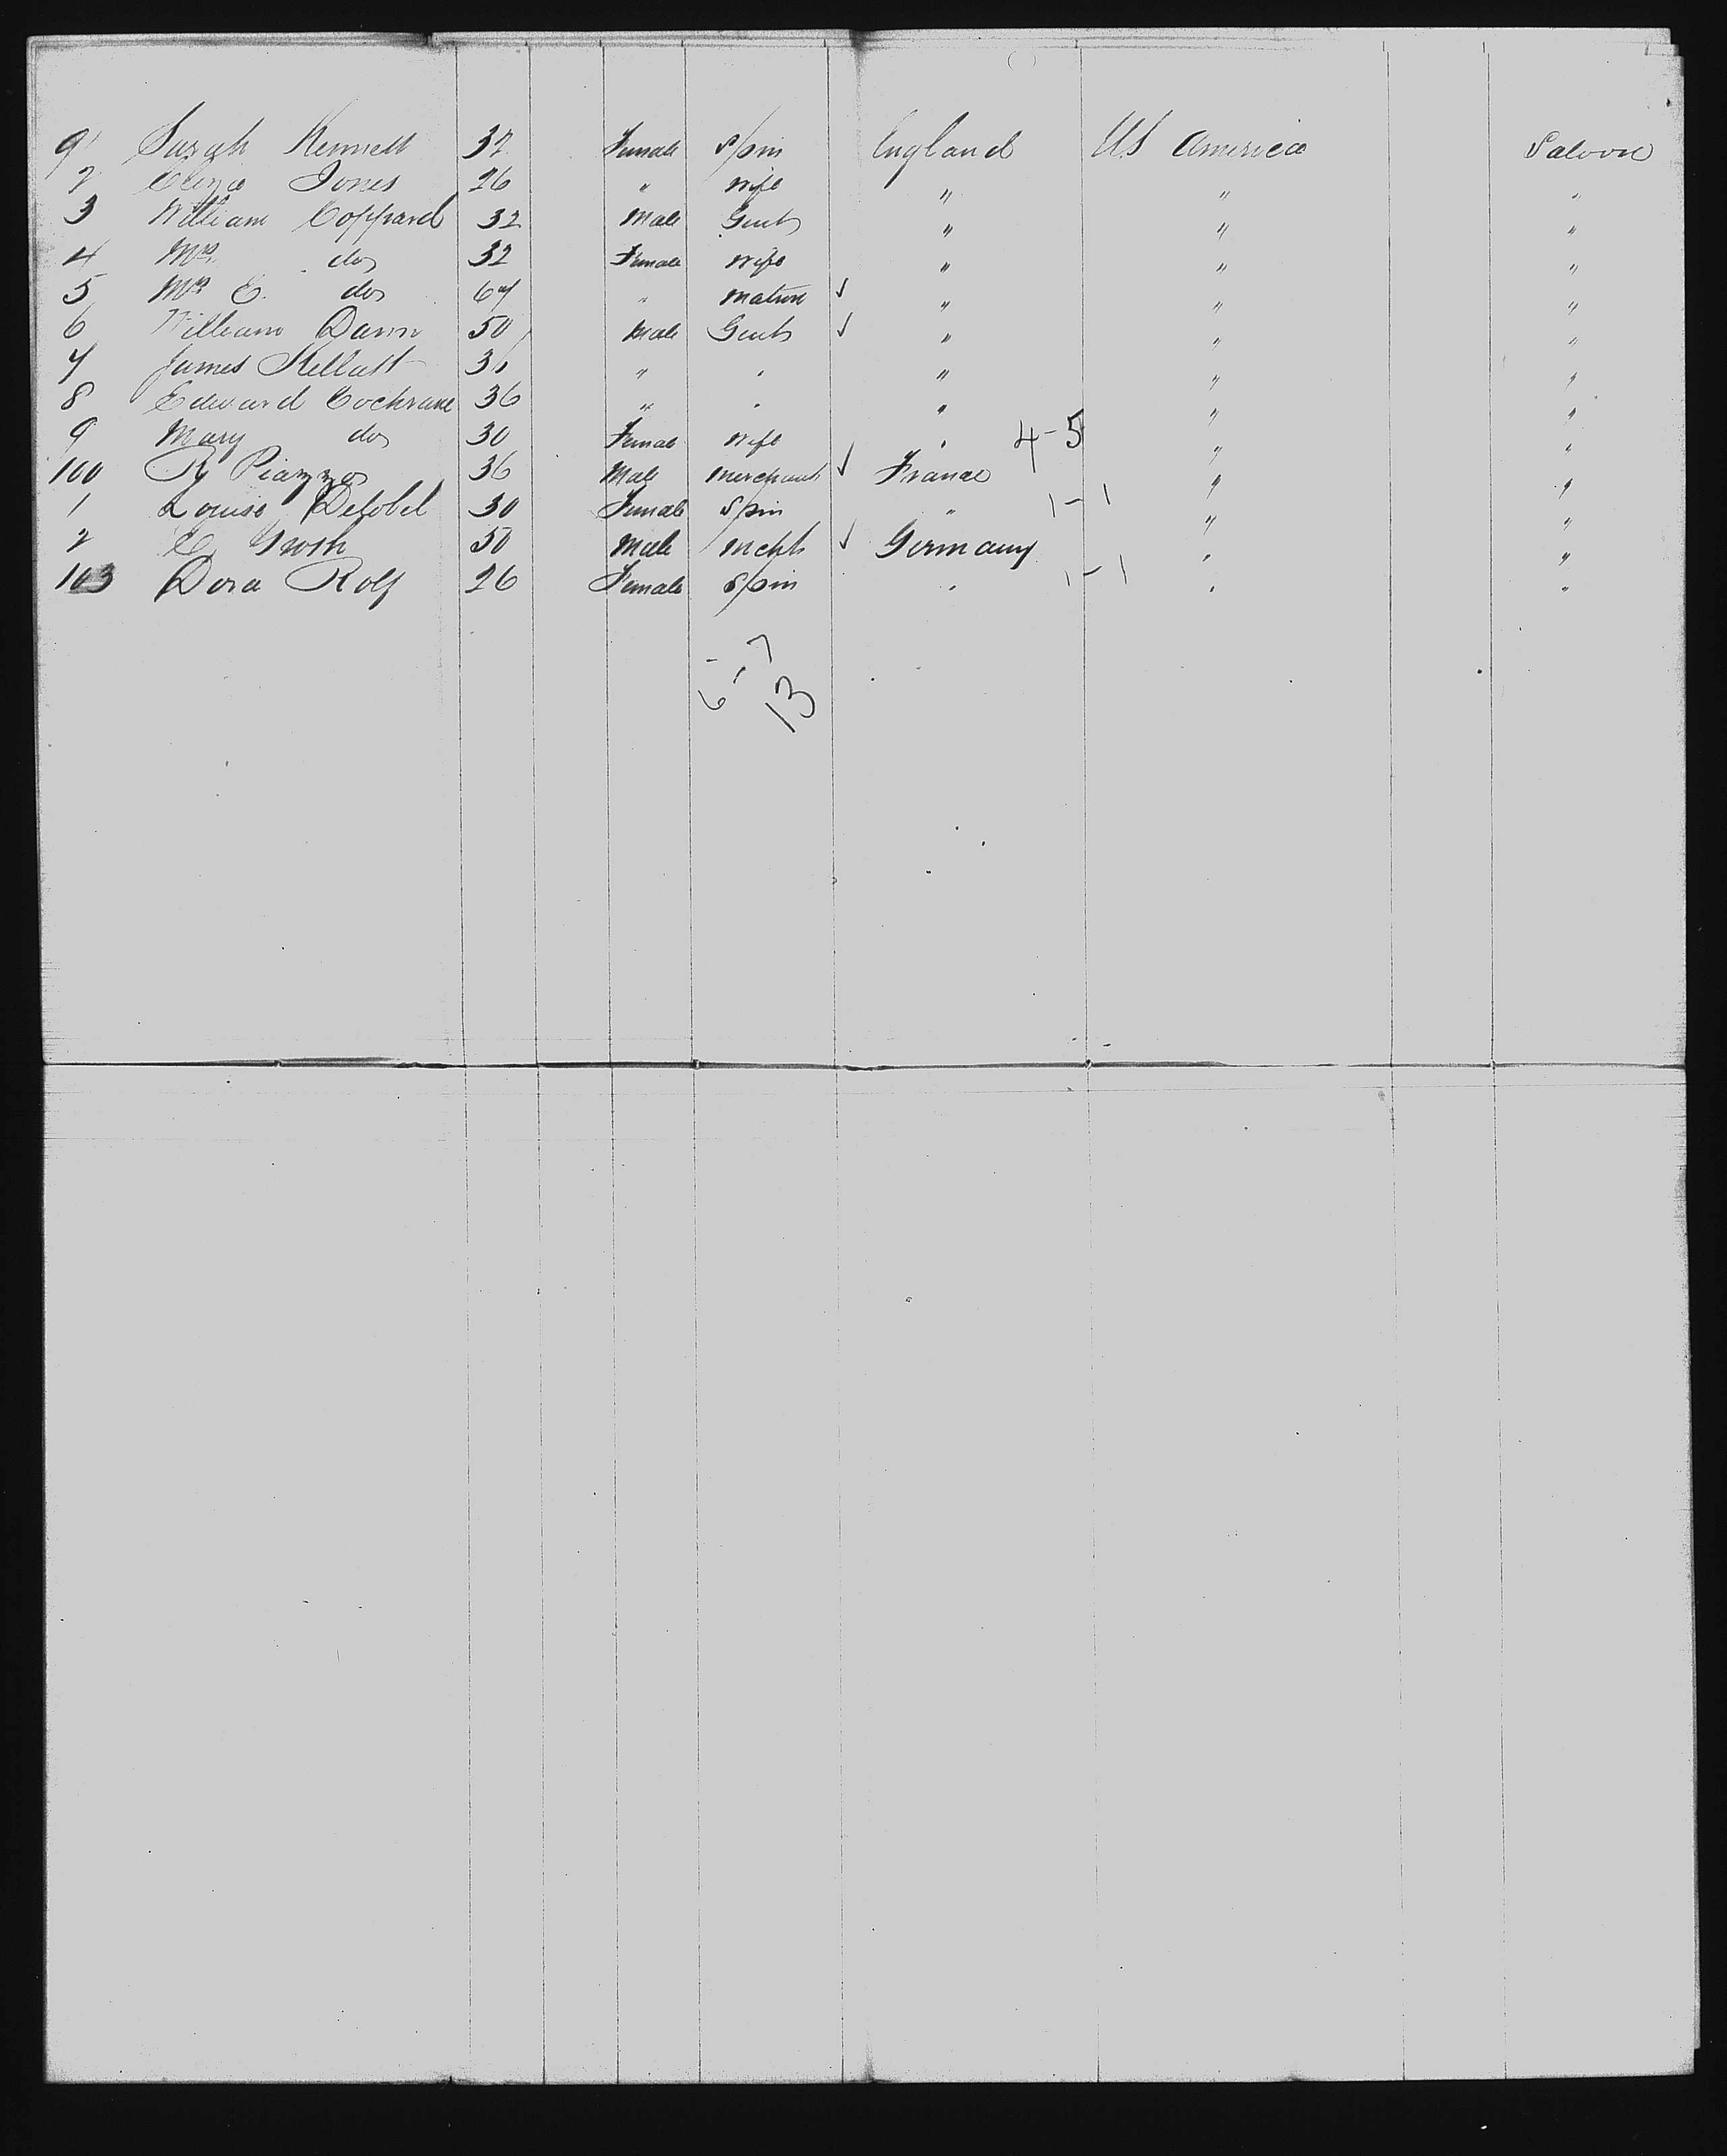 91 Sarah Kennett 32 Female Spin England US America Saloon
2 Eliza Jones 26 " Wife " " "
3 William Coppard 32 Male Gent " " "
4 Mrs do 32 Female Wife " " "
5 Mrs E. do 67 " Matron ✓ " " "
6 William Dann 50 Male Gent ✓ " " "
7 James Kellatt 36 " " " " "
8 Edward Cochrane 36 " " " " "
9 Mary do 30 Female Wife " 4-5 " "
100 Piazza 36 Male Merchant ✓ France " "
1 Louise Delobel 30 Female Spin " 1-1 " "
2 50 Male Mcht ✓ Germany " "
103 Dora Rolf 26 Female Spin " 1-1 " "
6-7
13